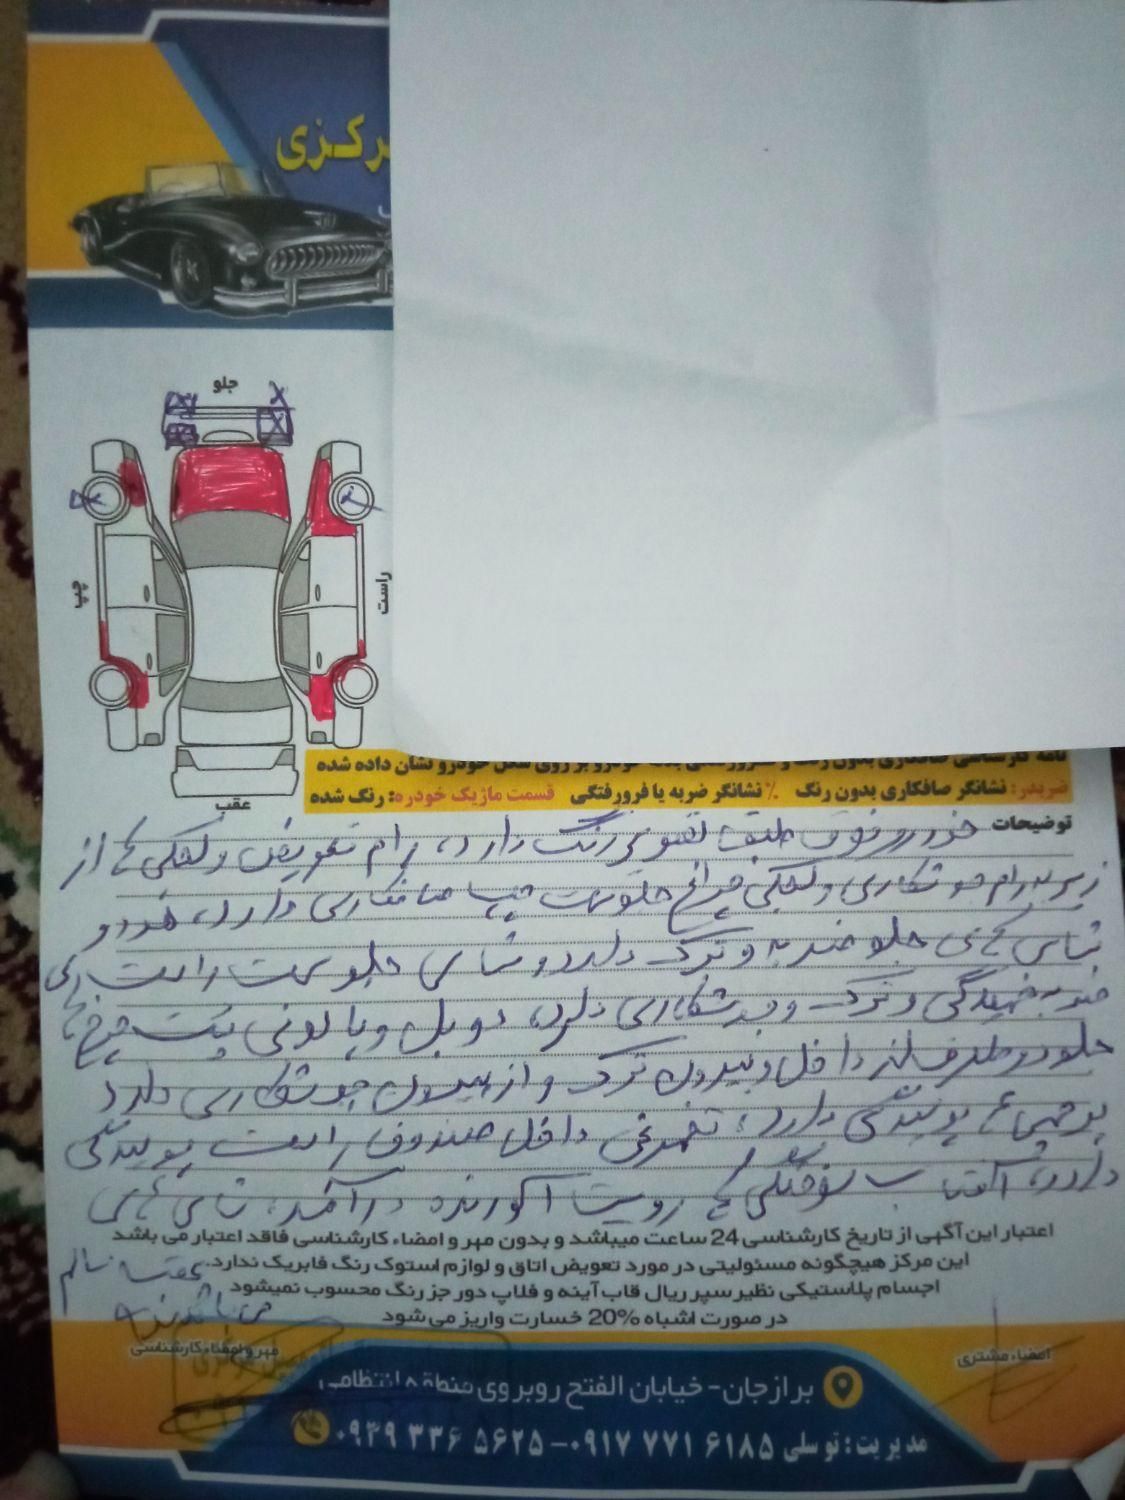 رکزی
جلو
راست
چپ
عقب
نامه کارشناسی صافکاری بدون رنگ و خودرو بر روی شکل خودرو نشان داده شده
ضربدر: نشانگر صافکاری بدون رنگ % نشانگر ضربه یا فرورفتگی قسمت ماژیک خورده: رنگ شده
توضیحات خودرو فوق طبق تصویر رنگ دارد، رام تعویض و لچکی ها از
زیر به رام جوشکاری و لچکی چراغ جلو سمت چپ صافکاری دارد، هر دو
شاسی های جلو ضربه و ترک دارد و شاسی جلو سمت راست
ضربه خمیدگی و ترک و جوشکاری دارد، دوبل و پالونی پشت چرخ ها
جلو دو طرف از داخل و بیرون ترک و از بیرون جوشکاری دارد
پرچمها پوسیدگی دارد، داخل صندوق راست پوسیدگی
دارد، آفتاب سوختگی ها رویت آکورده درآمد، شاسی های
عقب سالم
می باشد
اعتبار این آگهی از تاریخ کارشناسی 24 ساعت میباشد و بدون مهر و امضاء کارشناسی فاقد اعتبار می باشد
این مرکز هیچگونه مسئولیتی در مورد تعویض اتاق و لوازم استوک رنگ فابریک ندارد.
اجسام پلاستیکی نظیر سپر ریال قاب آینه و فلاپ دور جز رنگ محسوب نمیشود
در صورت اشباه 20% خسارت واریز می شود
امضاء مشتری
مهر و امضاء کارشناسی
برازجان- خیابان الفتح روبروی منطقه انتظامی
مدیریت: توسلی ۰۹۱۷ ۷۷۱ ۶۱۸۵-۰۹۳۹ ۳۳۶ ۵۶۲۵